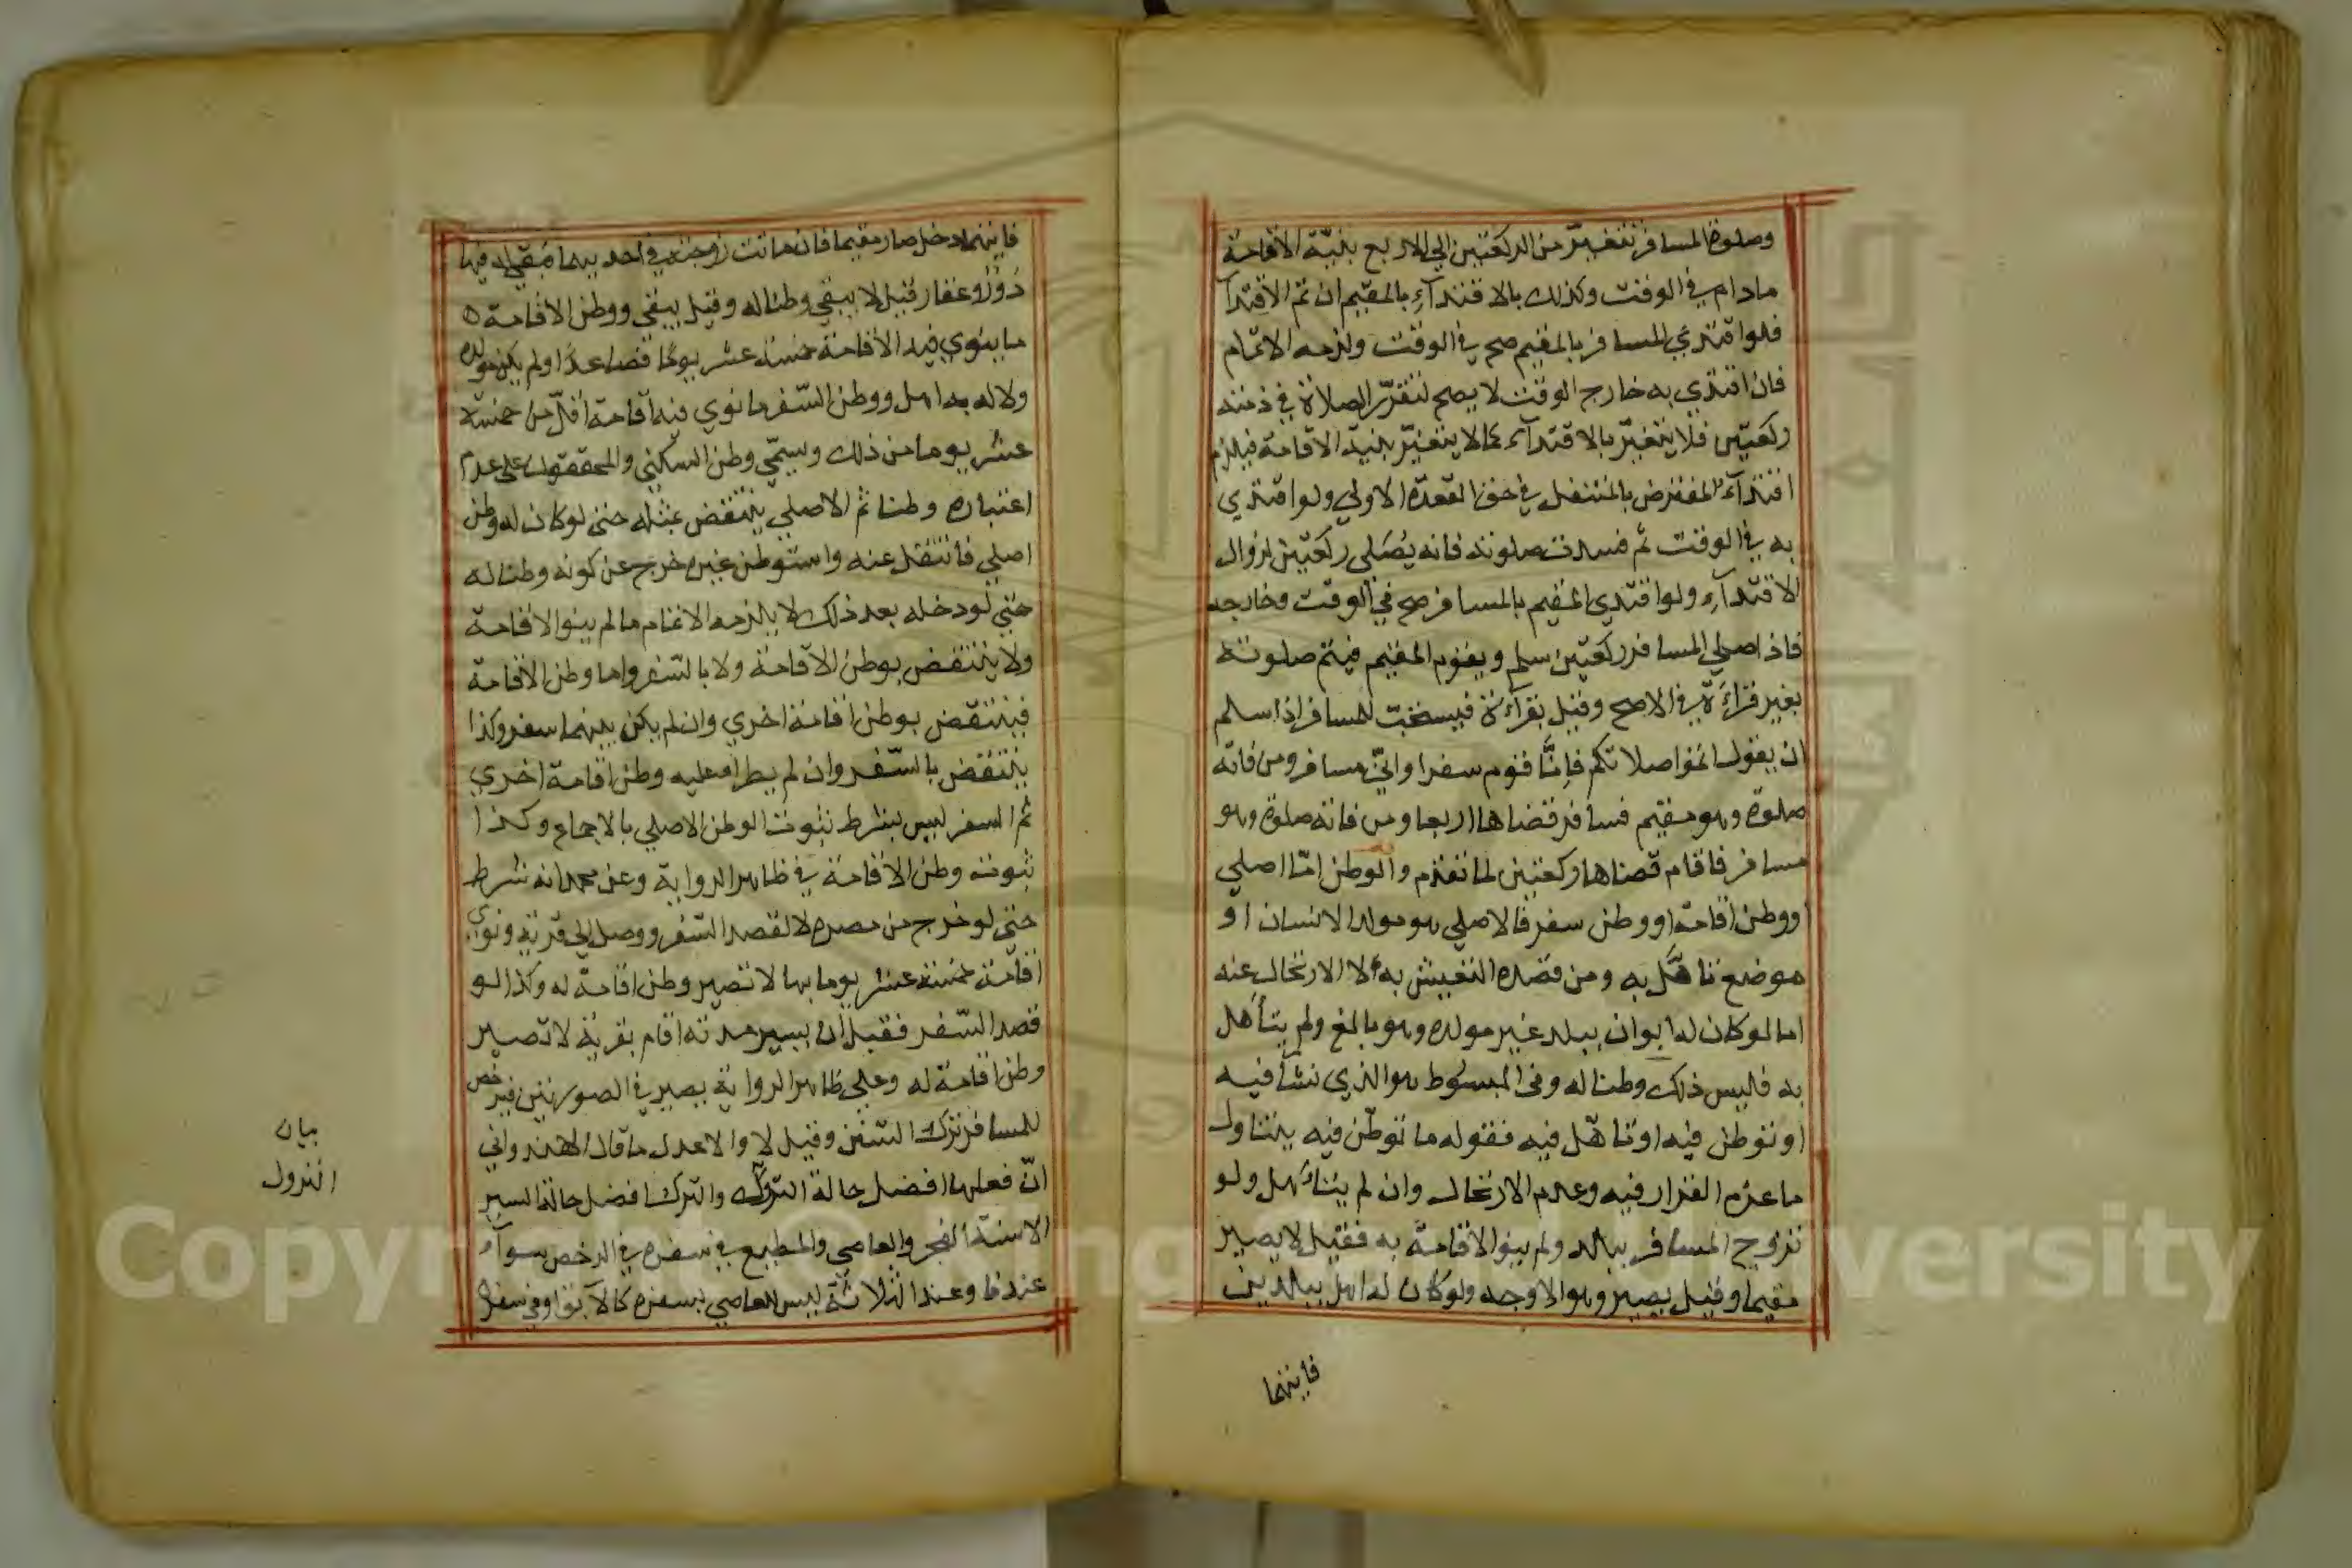 وصلوة المسافر تتغير من الركعتين الي الاربع بنية الاقامة
مادام في الوقت وكذلك بالاقتدآء بالمقيم ان تم الاقتدآ
فلو اقتدي المسافر بالمقيم صح في الوقت ولزمه الاتمام
فان اقتدي به خارج الوقت لا يصح لتقرر الصلاة في ذمته
ركعتين فلا يتغير بالاقتدآء كما لا يتغير بنية الاقامة فيلزم
اقتدآء المفترض بالمتنفل في حق القعدة الاولي ولو اقتدي
به في الوقت ثم فسدت صلوته فانه يصلي ركعتين لزوال
الاقتدآء ولو اقتدي المقيم بالمسافر صح في الوقت وخارجه
فاذا صلي المسافر ركعتين سلم ويقوم المقيم فيتم صلوته
بغير قرآءة في الاصح وقيل بقرآءة فيستحب للمسافر اذا سلم
ان يقول اتموا صلاتكم فإنا قوم سفرا واني مسافر ومن فاته
صلوة وهو مقيم فسافر قضاها اربعا ومن فاته صلوة وهو
مسافر فاقام قضاها ركعتين لما تقدم والوطن اما اصلي
او وطن اقامة او وطن سفر فالاصلي هو مولد الانسان او
موضع تاهل به ومن قصده التعيش به لا الارتحال عنه
اما لو كان له ابوان ببلد غير مولده وهو بالغ ولم يتأهل
به فليس ذلك وطنا له وفى المبسوط هو الذي نشأ فيه
او توطن فيه او تاهل فيه فقوله ما توطن فيه يتناول
ما عزم القرار فيه وعدم الارتحال وان لم يتأهل ولو
تزوج المسافر ببلد ولم ينو الاقامة به فقيل لا يصير
مقيما وقيل يصير وهو الاوجه ولو كان له اهل ببلدين
فايتهما
فايتهما دخل صار مقيما فان ماتت زوجته في احديهما وبقي له فيها
دور وعقار قيل لا يبقي وطنا له وقيل يبقي ووطن الاقامة
ما ينوي فيه الاقامة خمسة عشر يوما فصاعدا ولم يكن مولده
ولا له به اهل ووطن السفر ما نوي فيه اقامة اقل من خمسة
عشر يوما من ذلك ويسمي وطن السكني والمحققون على عدم
اعتباره وطنا ثم الاصلي ينتقض بمثله حتى لو كان له وطن
اصلي فانتقل عنه واستوطن غيره خرج عن كونه وطنا له
حتي لو دخله بعد ذلك لا يلزمه الاتمام ما لم ينو الاقامة
ولا ينتقض بوطن الاقامة ولا بالسفر واما وطن الاقامة
فينتقض بوطن اقامة اخري وان لم يكن بينهما سفر وكذا
ينتقض بالسفر وان لم يطرأ عليه وطن اقامة اخري
ثم السفر ليس بشرط ثبوت الوطن الاصلي بالاجماع وكذا
ثبوت وطن الاقامة في ظاهر الرواية وعن محمد انه شرط
حتى لو خرج من مصره لا لقصد السفر ووصل الي قرية ونوي
اقامة خمسة عشر يوما بها لا تصير وطن اقامة له وكذا لو
قصد السفر فقبل ان يسير مدته اقام بقرية لا تصير
وطن اقامة له وعلي ظاهر الرواية يصير في الصورتين فيرخص
للمسافر ترك السنن وقيل لا والاعدل ما قال الهندواني
ان فعلها افضل حالة النزول والترك افضل حالة السير
الا سنة الفجر والعاصي والمطيع في سفره في الرخص سوآء
عندنا وعند الثلاثة ليس للعاصي بسفره كالآبق او في سفر
بيان
النزول
Copyright © King Saud University